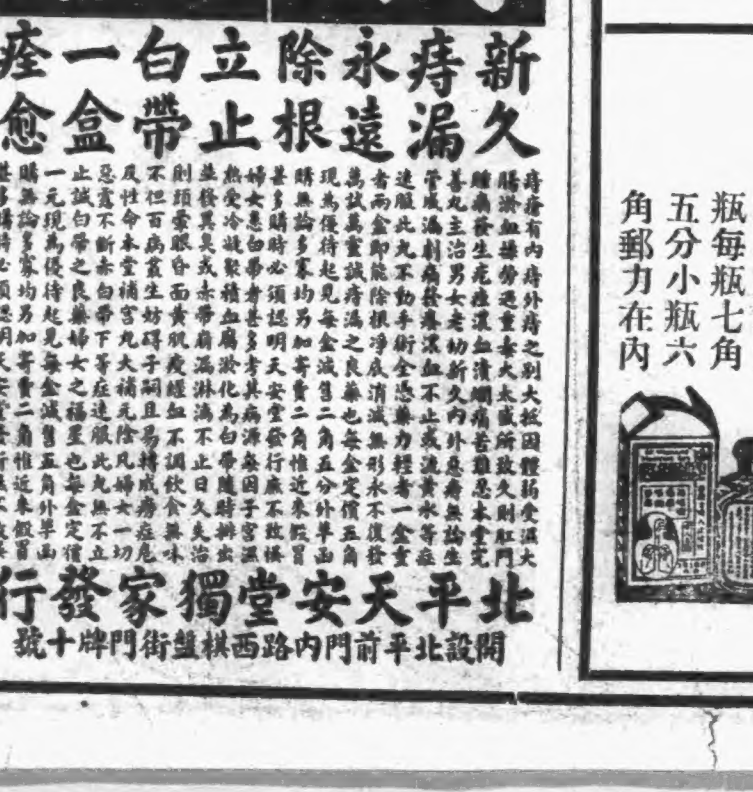 瓶每瓶七角
五分小瓶六
角郵力在內
新久
痔漏
永遠
除根
立止
白帶
一盒
痊愈
痔瘡有內痔外痔之別大抵因體弱受濕大
腸淤血操勞過重大太盛所致久則肛門
腫痛發生疙疸濃血潰爛痛苦難忍本堂完
善丸主治男女老幼新久內外各痔無論生
管成漏刺痛發癢濃血不止或流黃水等症
速服此丸不動手術全憑藥力輕者一盒重
者兩盒卽能除根凈底消滅無形永不復發
萬試萬靈誠痔漏之良藥也每盒定價五角
現為優待起見每盒減售二角五分外埠函
購無論多寡均另加寄費二角惟近來假冒
甚多購時必須認明天安堂發行庶不致悞
婦女患白帶者甚多考其病源每因子宮濕
熱受冷凝聚積血腐淤化為白帶隨時排出
並發異臭或赤帶崩漏淋漓不止日久失治
則頭暈眼昏面黃肌瘦經血不調飲食無味
不但百病叢生妨碍子嗣且易轉成癆症危
及性命本堂補宮丸大補元陰凡婦女一切
惡露不斷赤白帶下等症速服此丸無不立
止誠白帶之良藥婦女之福星也每盒定價
一元現為優待起見每盒減售五角外埠函
購無論多寡均另加寄費二角惟近來假冒
甚多購時必須認明天安堂發行
北平天安堂獨家發行
開設北平前門內路西棋盤街門牌十號